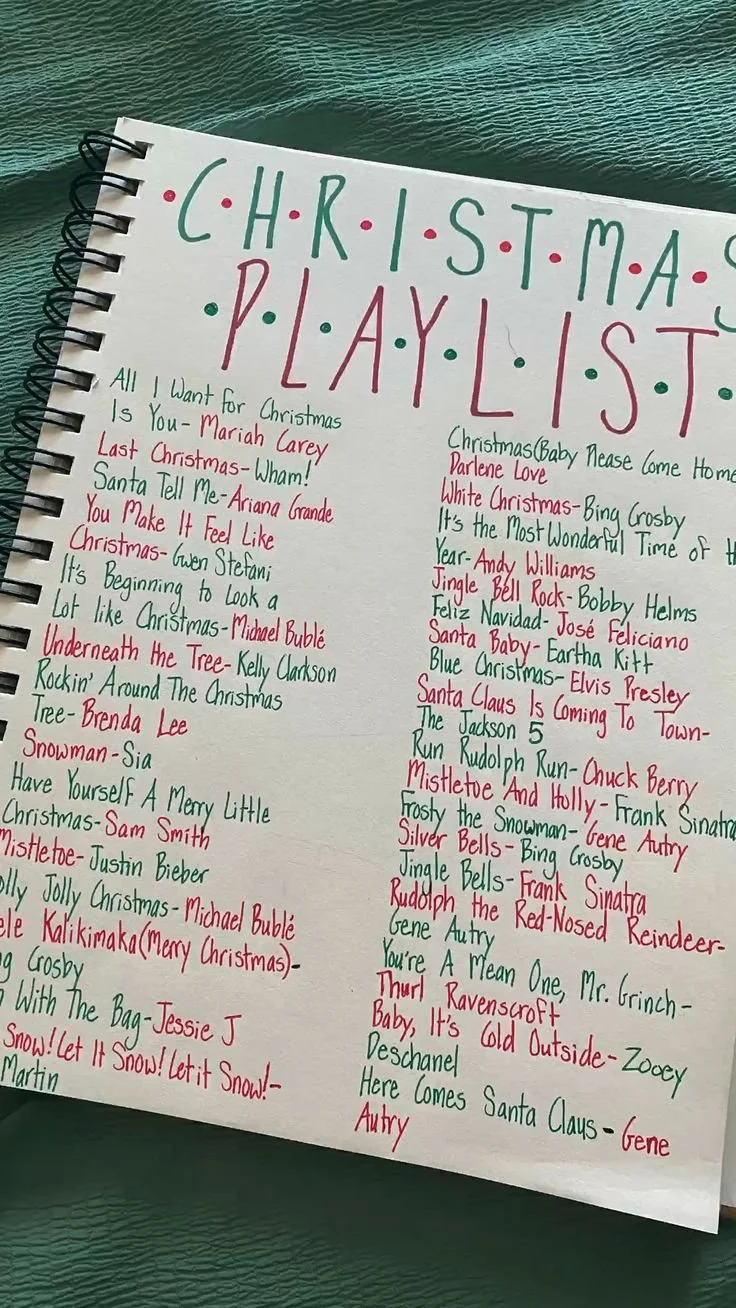 CHRISTMAS
PLAYLIST
All I Want for Christmas
Is You- Mariah Carey
Last Christmas- Wham!
Santa Tell Me-Ariana Grande
You Make It Feel Like
Christmas- Gwen Stefani
It's Beginning to Look a
Lot like Christmas-Michael Bublé
Underneath the Tree- Kelly Clarkson
Rockin' Around The Christmas
Tree- Brenda Lee
Snowman-Sia
Have Yourself A Merry Little
Christmas- Sam Smith
Mistletoe- Justin Bieber
olly Jolly Christmas- Michael Bublé
ele Kalikimaka(Merry Christmas)-
g Crosby
With The Bag-Jessie J
Snow! Let It Snow! Let it Snow!-
Martin
Christmas(Baby Please Come Home
Darlene Love
White Christmas- Bing Crosby
It's the Most Wonderful Time of
Year- Andy Williams
Jingle Bell Rock- Bobby Helms
Feliz Navidad- José Feliciano
Santa Baby- Eartha Kitt
Blue Christmas- Elvis Presley
Santa Claus Is Coming To Town-
The Jackson 5
Run Rudolph Run- Chuck Berry
Mistletoe And Holly- Frank Sinatra
Frosty the Snowman- Gene Autry
Silver Bells- Bing Crosby
Jingle Bells- Frank Sinatra
Rudolph the Red-Nosed Reindeer-
Gene Autry
You're A Mean One, Mr. Grinch-
Thurl Ravenscroft
Baby, It's Cold Outside- Zooey
Deschanel
Here Comes Santa Claus- Gene
Autry